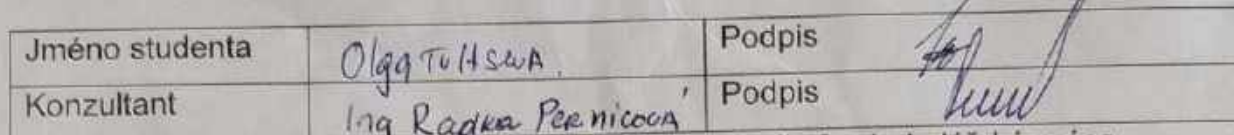 Jméno studenta Olga Podpis
Konzultant Ing Radka Pernicová Podpis